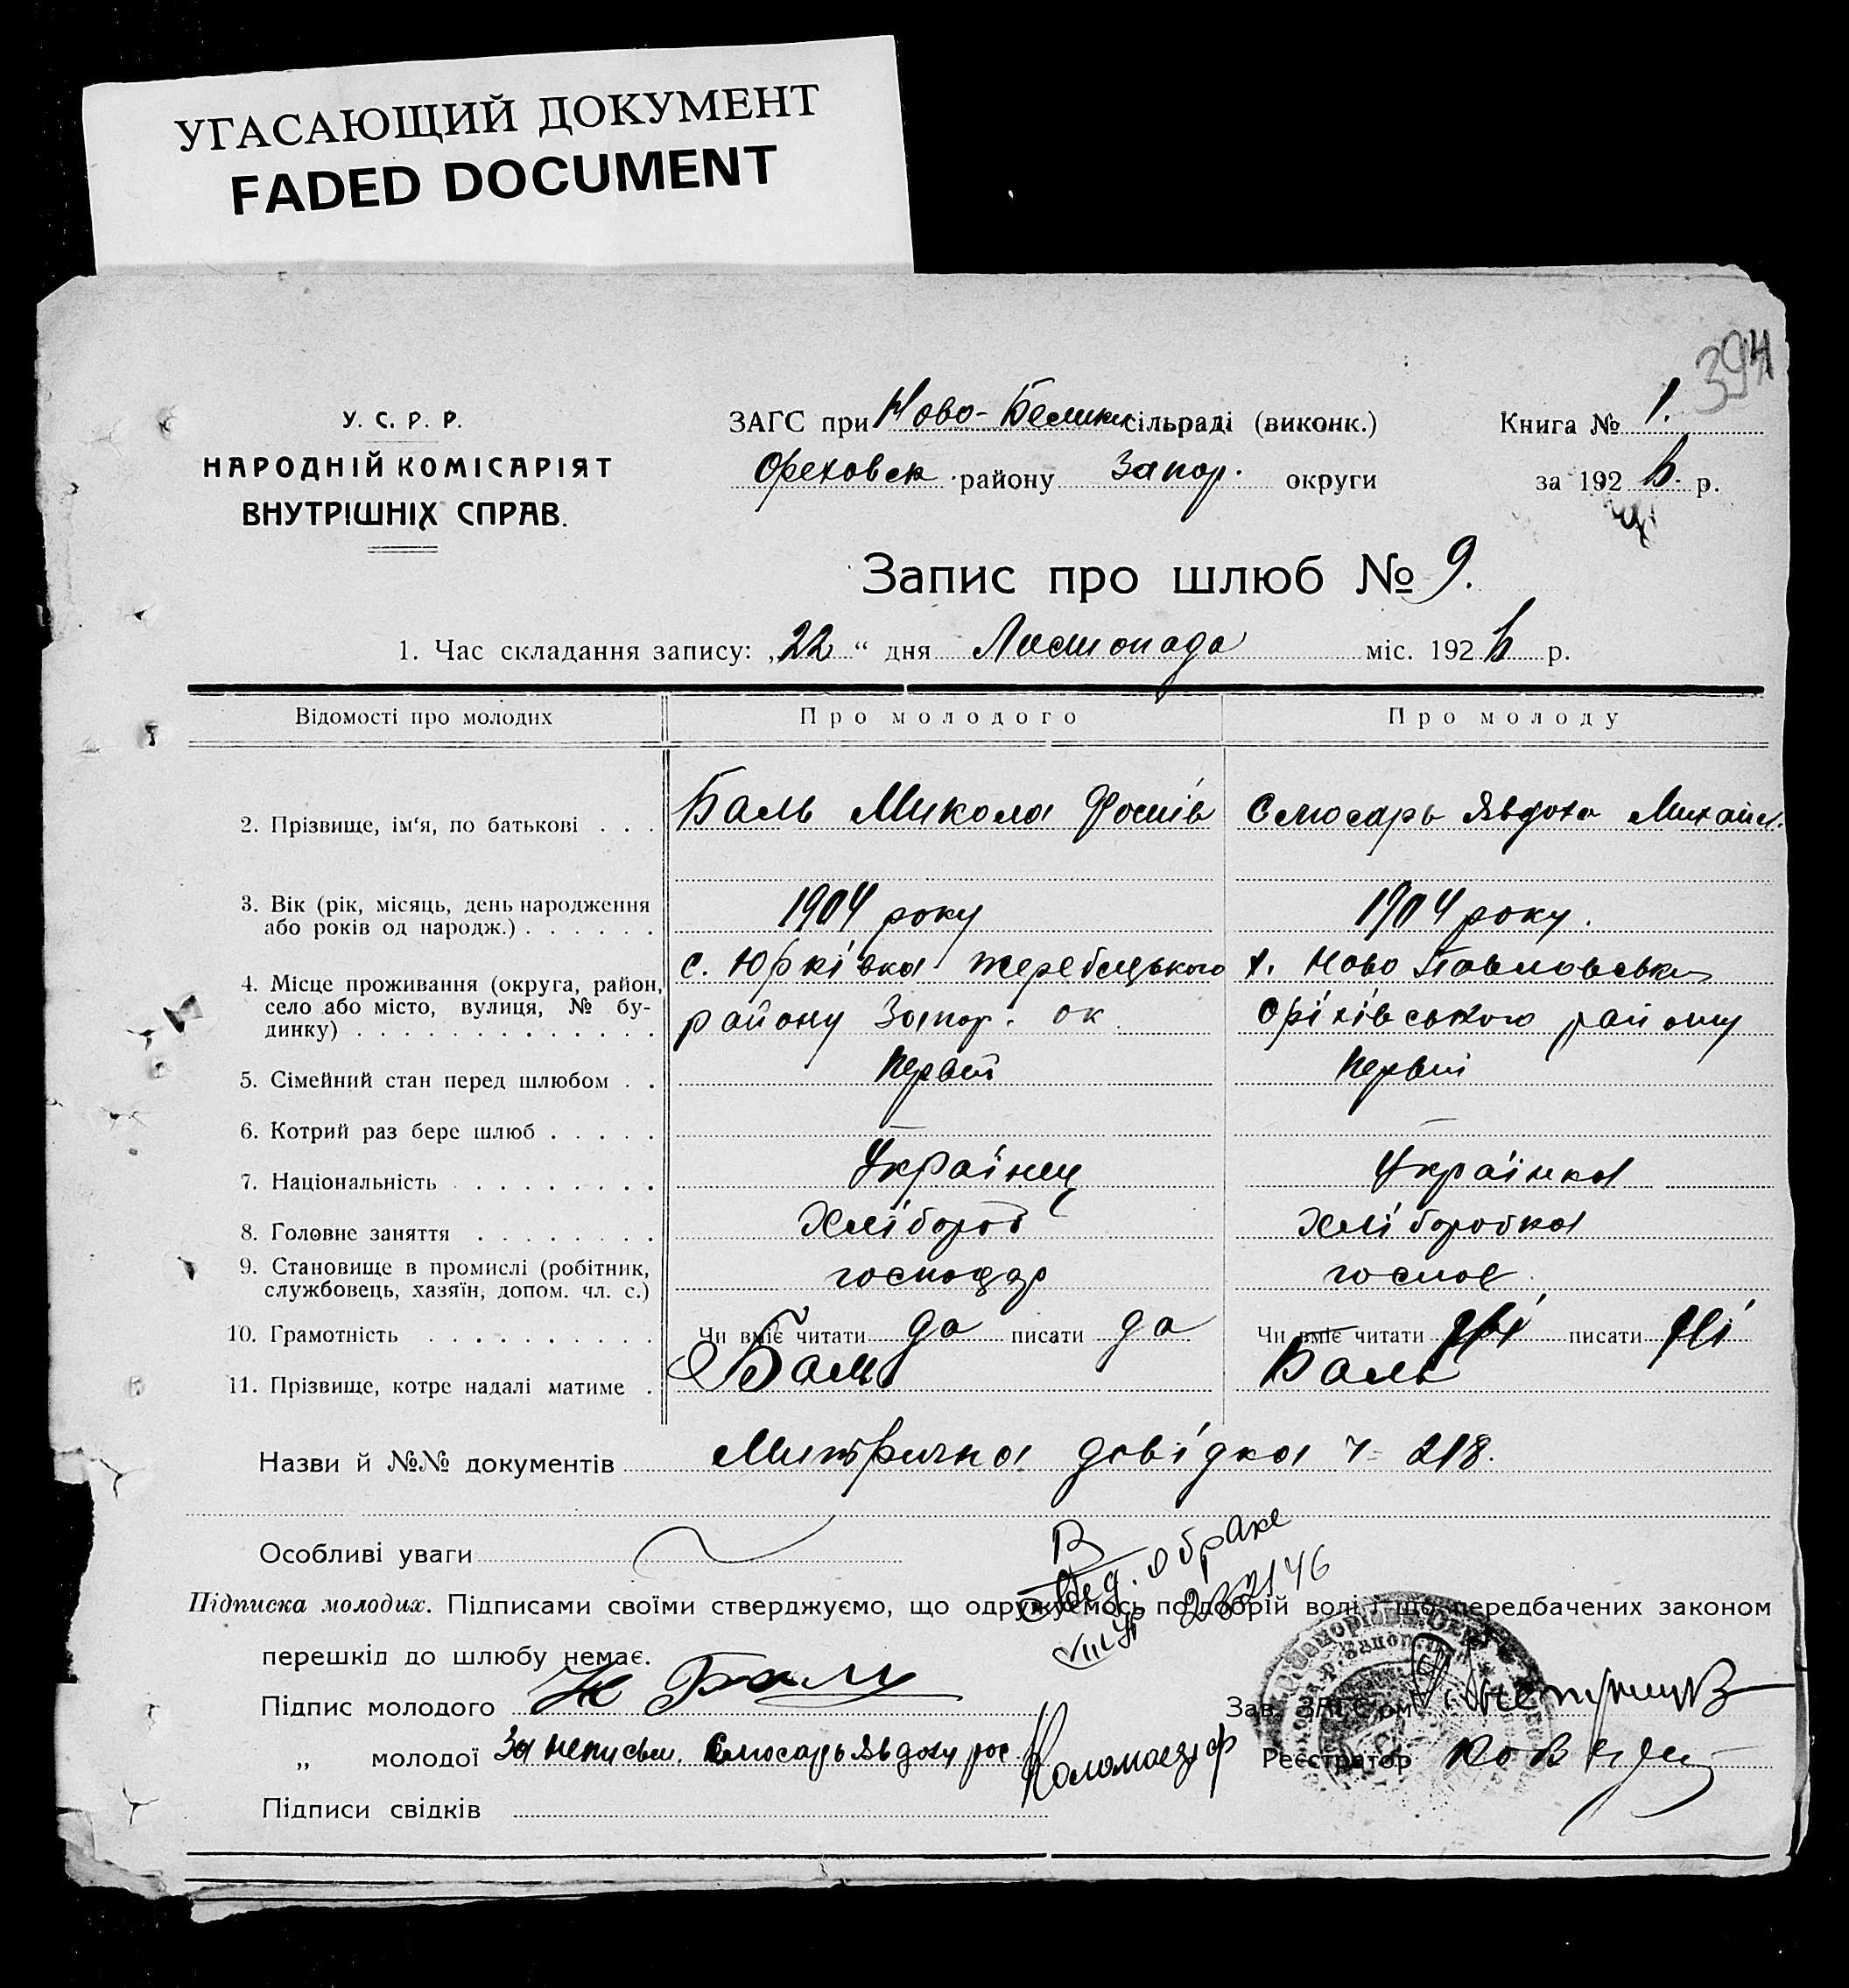 УГАСАЮЩИЙ ДОКУМЕНТ
FADED DOCUMENT
394
У. С. Р. Р.
НАРОДНІЙ КОМІСАРІЯТ
ВНУТРІШНІХ СПРАВ.
ЗАГС при Ново- сільраді (виконк.)
Ореховск району Запор. округи
Книга № 1.
за 192 р.
Запис про шлюб № 9.
1. Час складання запису: „22 “ дня Листопада міс. 192 р.
Відомості про молодих
Про молодого
Про молоду
2. Прізвище, ім'я, по батькові . . .
Баль Микола Фотів
Слюсарь Явдоха Михайл.
3. Вік (рік, місяць, день народження
або років од народж.) . . . . . .
1904 року
1904 року.
4. Місце проживання (округа, район,
село або місто, вулиця, № бу-
динку) . . . . . . . . . . . . .
с. Юрківка Жеребецького
району Запор. ок
х. Ново Павловська
Оріхівського району
5. Сімейний стан перед шлюбом . .
Первий
Первий
6. Котрий раз бере шлюб . . . . .
–
–
7. Національність . . . . . . . .
Українец
Українка
8. Головне заняття . . . . . . . .
Хлібороб
Хліборобка
9. Становище в промислі (робітник,
службовець, хазяїн, допом. чл. с.)
господар
10. Грамотність . . . . . . . . . .
Чи вміє читати да писати да
Чи вміє читати ні писати ні
11. Прізвище, котре надалі матиме .
Баль
Баль
Назви й №№ документів Митрична довідка ч= 218.
Особливі уваги
В
о браке
Підписка молодих. Підписами своїми стверджуємо, що одружуємось по добрій волі і що передбачених законом
перешкід до шлюбу немає.
Підпис молодого Н Баль
Зав. ЗАГС'ом
„ молодої За неписьм. Слюсарь Явдоху рос Коломоец Ф
Реєстратор
Підписи свідків